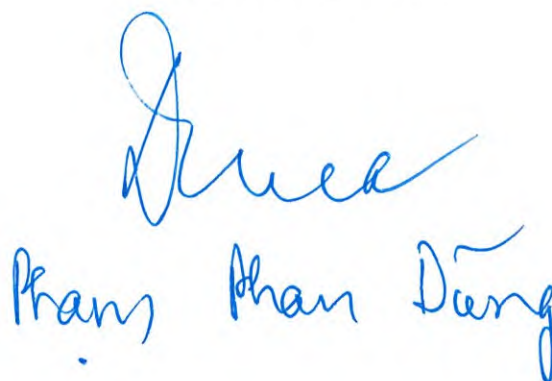 Phạm Phan Dũng